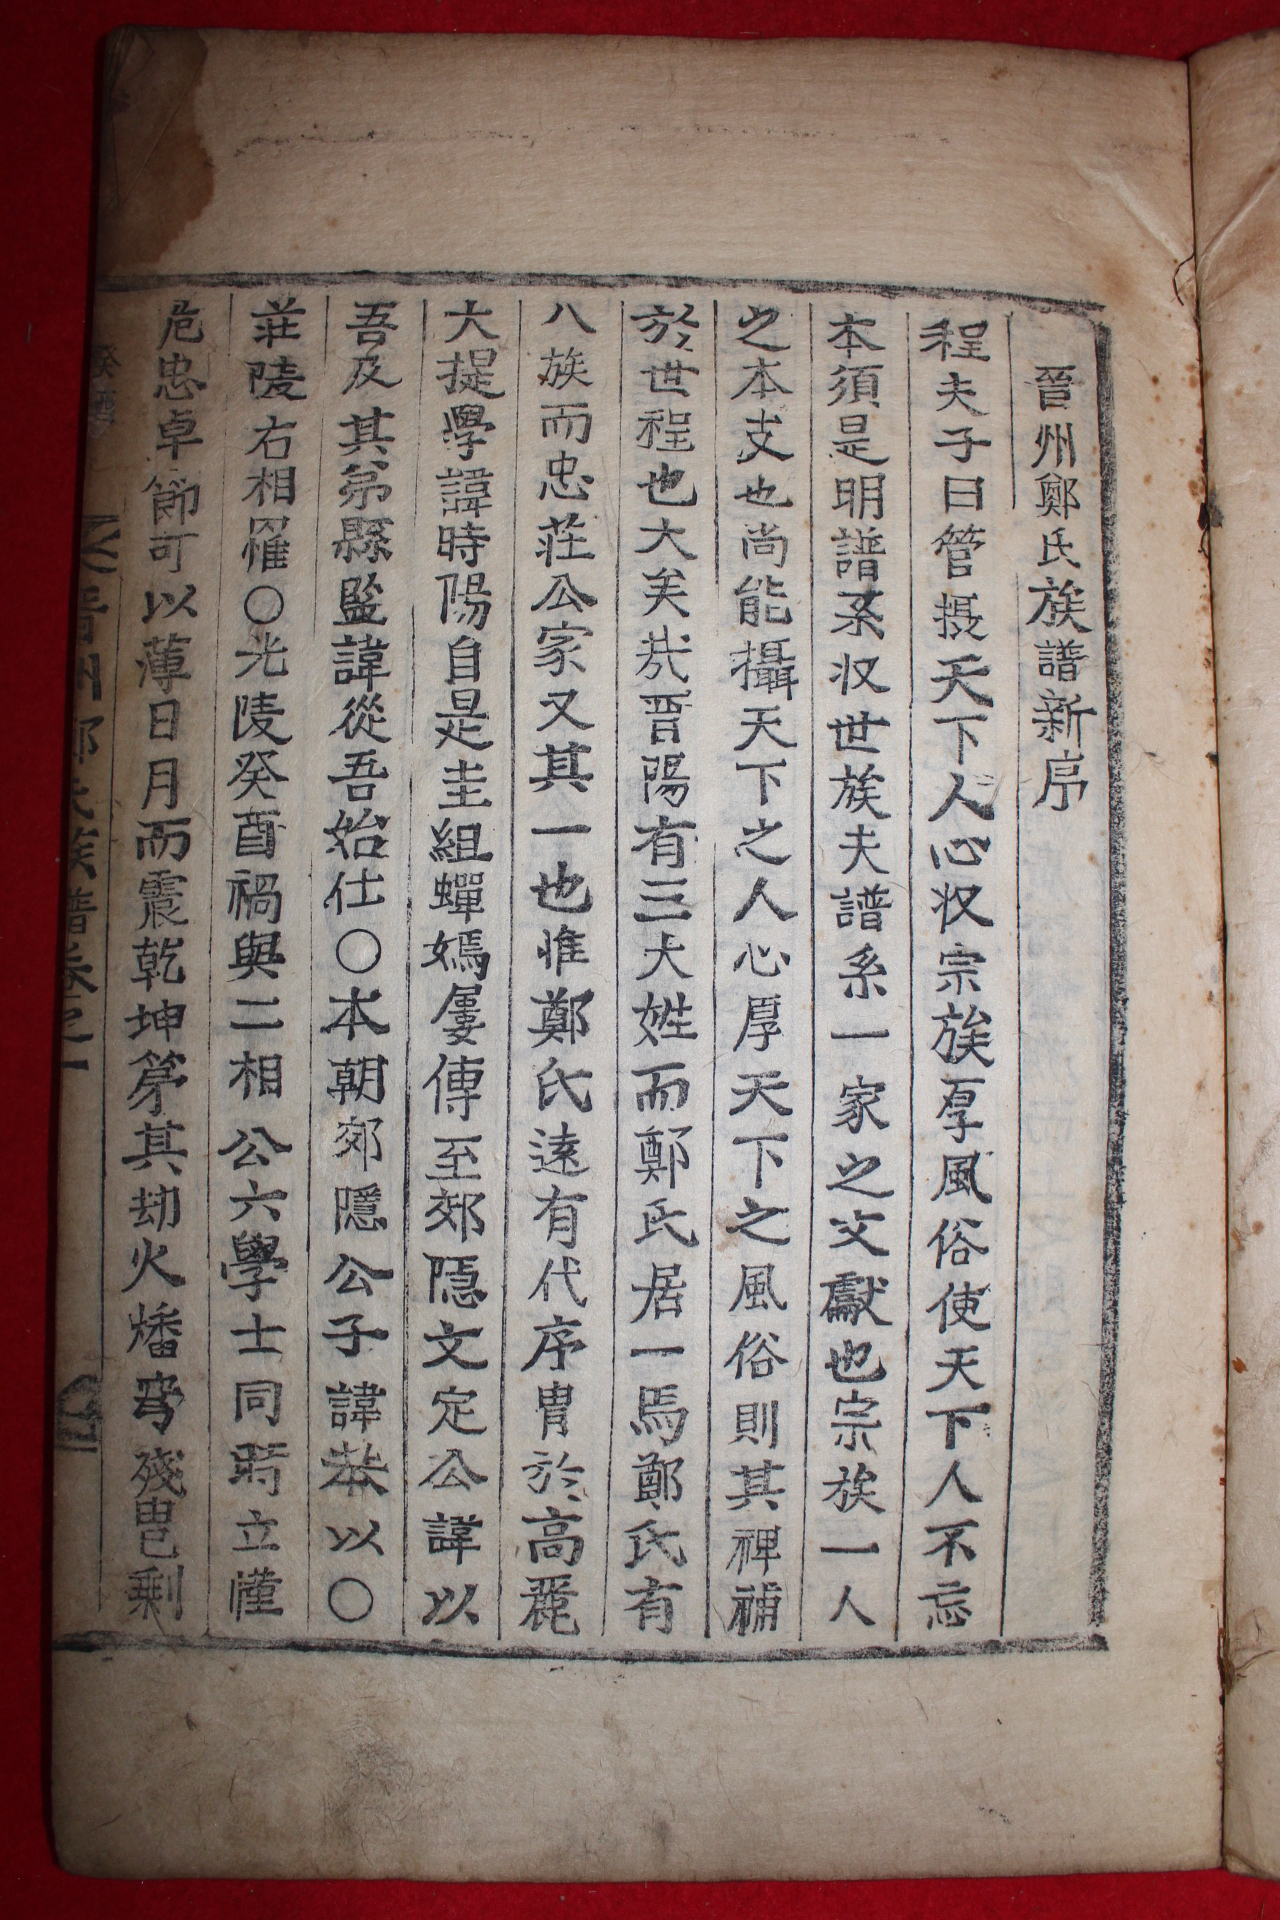 晉州鄭氏族譜新序
程夫子曰管摂天下人心収宗族厚風俗使天下人不忘
本須是明譜系収世族夫譜系一家之文獻也宗族一人
之本支也尚能攝天下之人心厚天下之風俗則其裨補
於世程也大矣㢤晋陽有三大姓而鄭氏居一焉鄭氏有
八族而忠荘公家又其一也惟鄭氏逺有代序冑於高麗
大提學諱時陽自是圭組蟬嫣屢傳至郊隠文定公諱以
吾及其弟縣監諱從吾始仕〇本朝郊隱公子諱棼以〇
莊陵右相罹〇光陵癸酉禍與二相公六學士同時立慬
危忠卓節可以薄日月而震乾坤第其劫火燔穹殘皀剩
晉州鄭氏族譜卷之一